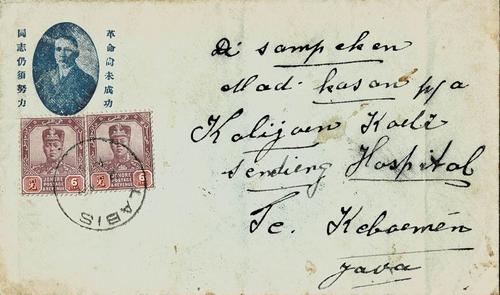 革命尚未成功
同志仍須努力
Di sampeken
Mad kasan p/a
Kalijaen Kodi
sending Hospital
Te. Keboemén
Java
JOHORE
POSTAGE
& REVENUE
6
JOHORE
POSTAGE
& REVENUE
6
LABIS